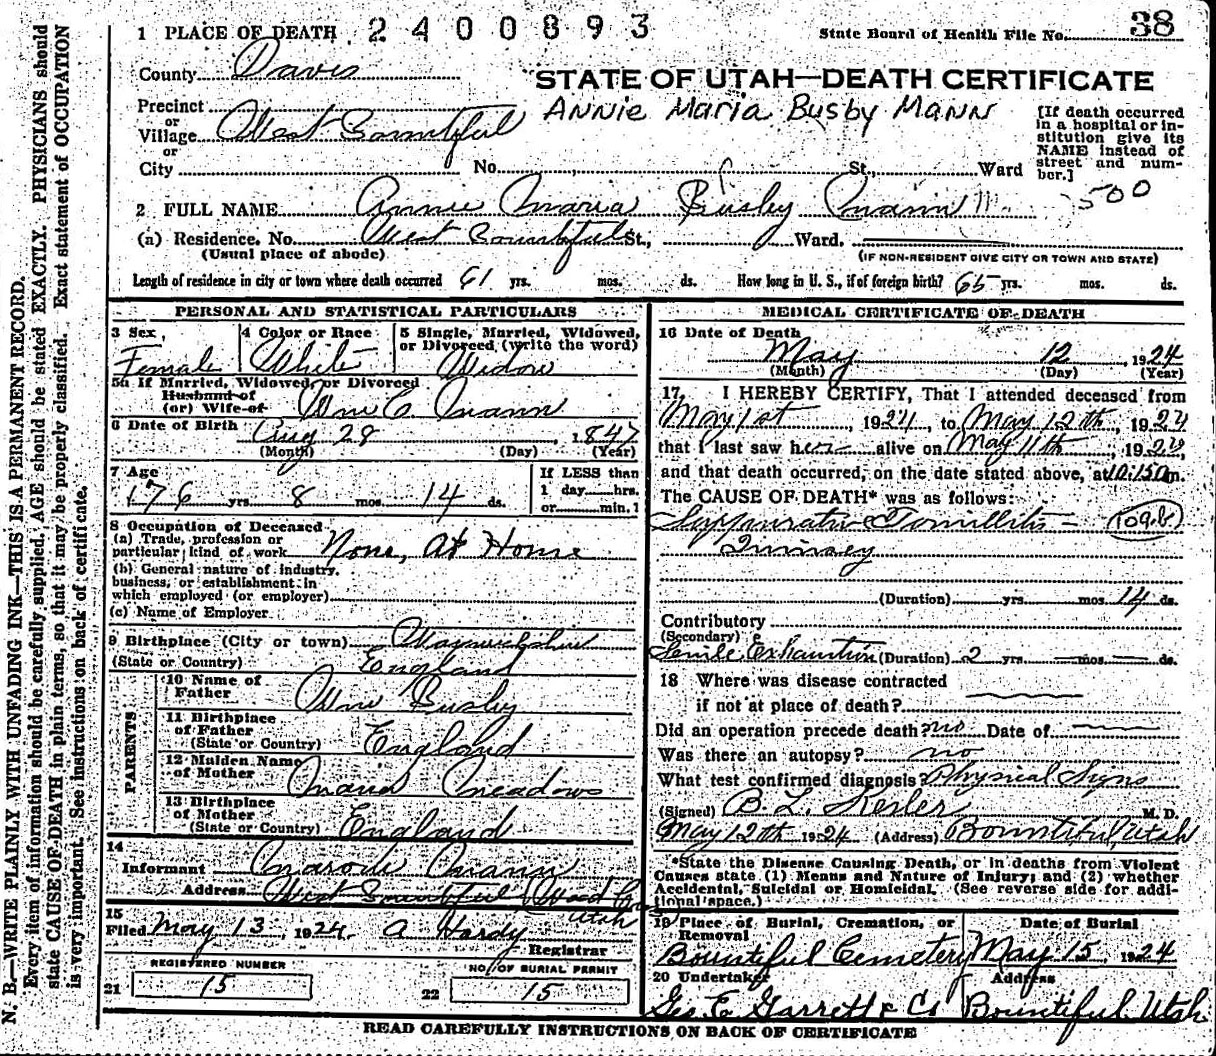 1 PLACE OF DEATH 2400893
State Board of Health File No. 38
County Davis
STATE OF UTAH—DEATH CERTIFICATE
Precinct
or
Village West Bountiful
or
City No. St., Ward
ANNIE MARIA BUSBY MANN
[If death occurred
in a hospital or in-
stitution give its
NAME instead of
street and num-
ber.]
500
2 FULL NAME Annie Maria Busby Mann
(a) Residence. No. West Bountiful St., Ward.
(Usual place of abode)
(IF NON-RESIDENT GIVE CITY OR TOWN AND STATE)
Length of residence in city or town where death occurred 61 yrs. mos. ds. How long in U. S., if of foreign birth? 65 yrs. mos. ds.
PERSONAL AND STATISTICAL PARTICULARS
3 Sex
Female
4 Color or Race
White
5 Single, Married, Widowed,
or Divorced (write the word)
Widow
5a If Married, Widowed, or Divorced
Husband of
(or) Wife of Wm C. Mann
6 Date of Birth Aug 28, 1847
(Month) (Day) (Year)
7 Age
76 yrs. 8 mos. 14 ds.
If LESS than
1 day hrs.
or min.
8 Occupation of Deceased
(a) Trade, profession or
particular kind of work None, At Home
(b) General nature of industry,
business, or establishment in
which employed (or employer)
(c) Name of Employer
9 Birthplace (City or town) Warwickshire
(State or Country) England
PARENTS
10 Name of
Father Wm Busby
11 Birthplace
of Father
(State or Country) England
12 Maiden Name
of Mother Meadows
13 Birthplace
of Mother
(State or Country) England
14
Informant Mann
Address West Bountiful
Utah
15
Filed May 13, 1924. A Hardy
Registrar
REGISTERED NUMBER
21 15
NO. OF BURIAL PERMIT
22 15
MEDICAL CERTIFICATE OF DEATH
16 Date of Death
May 12 1924
(Month) (Day) (Year)
17. I HEREBY CERTIFY, That I attended deceased from
May 1st, 1924, to May 12th, 1924
that I last saw her alive on May 11th, 1924,
and that death occurred, on the date stated above, at 10:15 m.
The CAUSE OF DEATH* was as follows:
Suppurative Tonsillitis – 109.b
Quinsey
(Duration) yrs. mos. 14 ds.
Contributory
(Secondary)
Senile Exhaustion (Duration) 2 yrs. mos. ds.
18 Where was disease contracted
if not at place of death?
Did an operation precede death? no Date of
Was there an autopsy? no
What test confirmed diagnosis? Physical Signs
(Signed) B. L. Kesler M. D.
May 12th 1924 (Address) Bountiful, Utah
*State the Disease Causing Death, or in deaths from Violent
Causes state (1) Means and Nature of Injury; and (2) whether
Accidental, Suicidal or Homicidal. (See reverse side for addi-
tional space.)
19 Place of Burial, Cremation, or
Removal
Bountiful Cemetery
Date of Burial
May 15, 1924
20 Undertaker
Geo. E. Garrett & Co
Address
Bountiful, Utah
READ CAREFULLY INSTRUCTIONS ON BACK OF CERTIFICATE
N. B.—WRITE PLAINLY WITH UNFADING INK—THIS IS A PERMANENT RECORD.
Every item of information should be carefully supplied. AGE should be stated EXACTLY. PHYSICIANS should
state CAUSE OF DEATH in plain terms, so that it may be properly classified. Exact statement of OCCUPATION
is very important. See instructions on back of certificate.